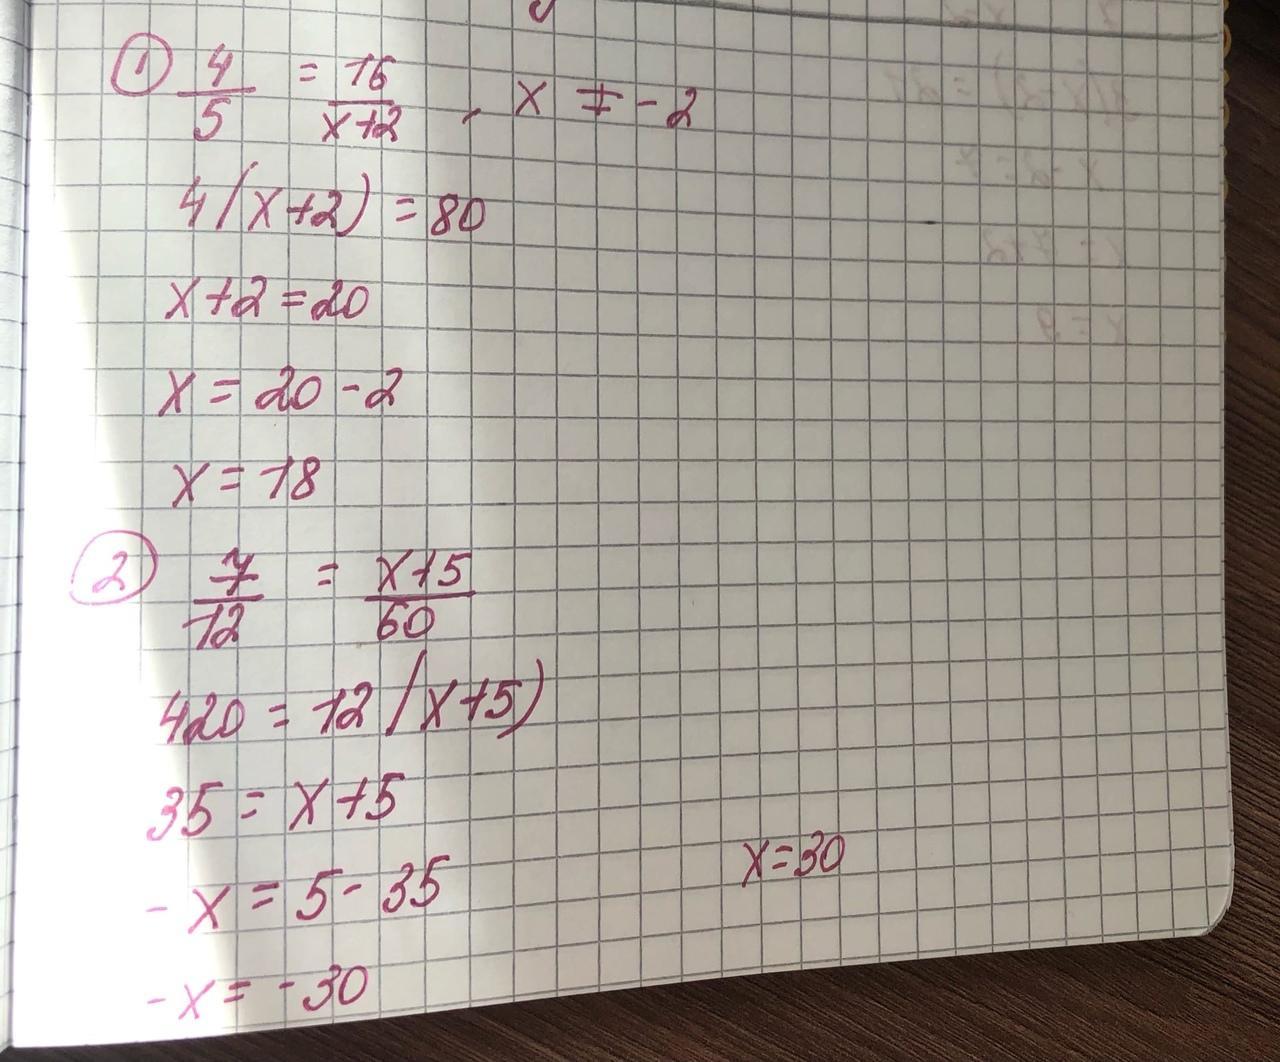 ① 4/5 = 16/(x+2) , x ≠ -2
4(x+2) = 80
x+2 = 20
x = 20 - 2
x = 18
② 7/12 = (x+5)/60
420 = 12(x+5)
35 = x+5
-x = 5 - 35
-x = -30
x = 30